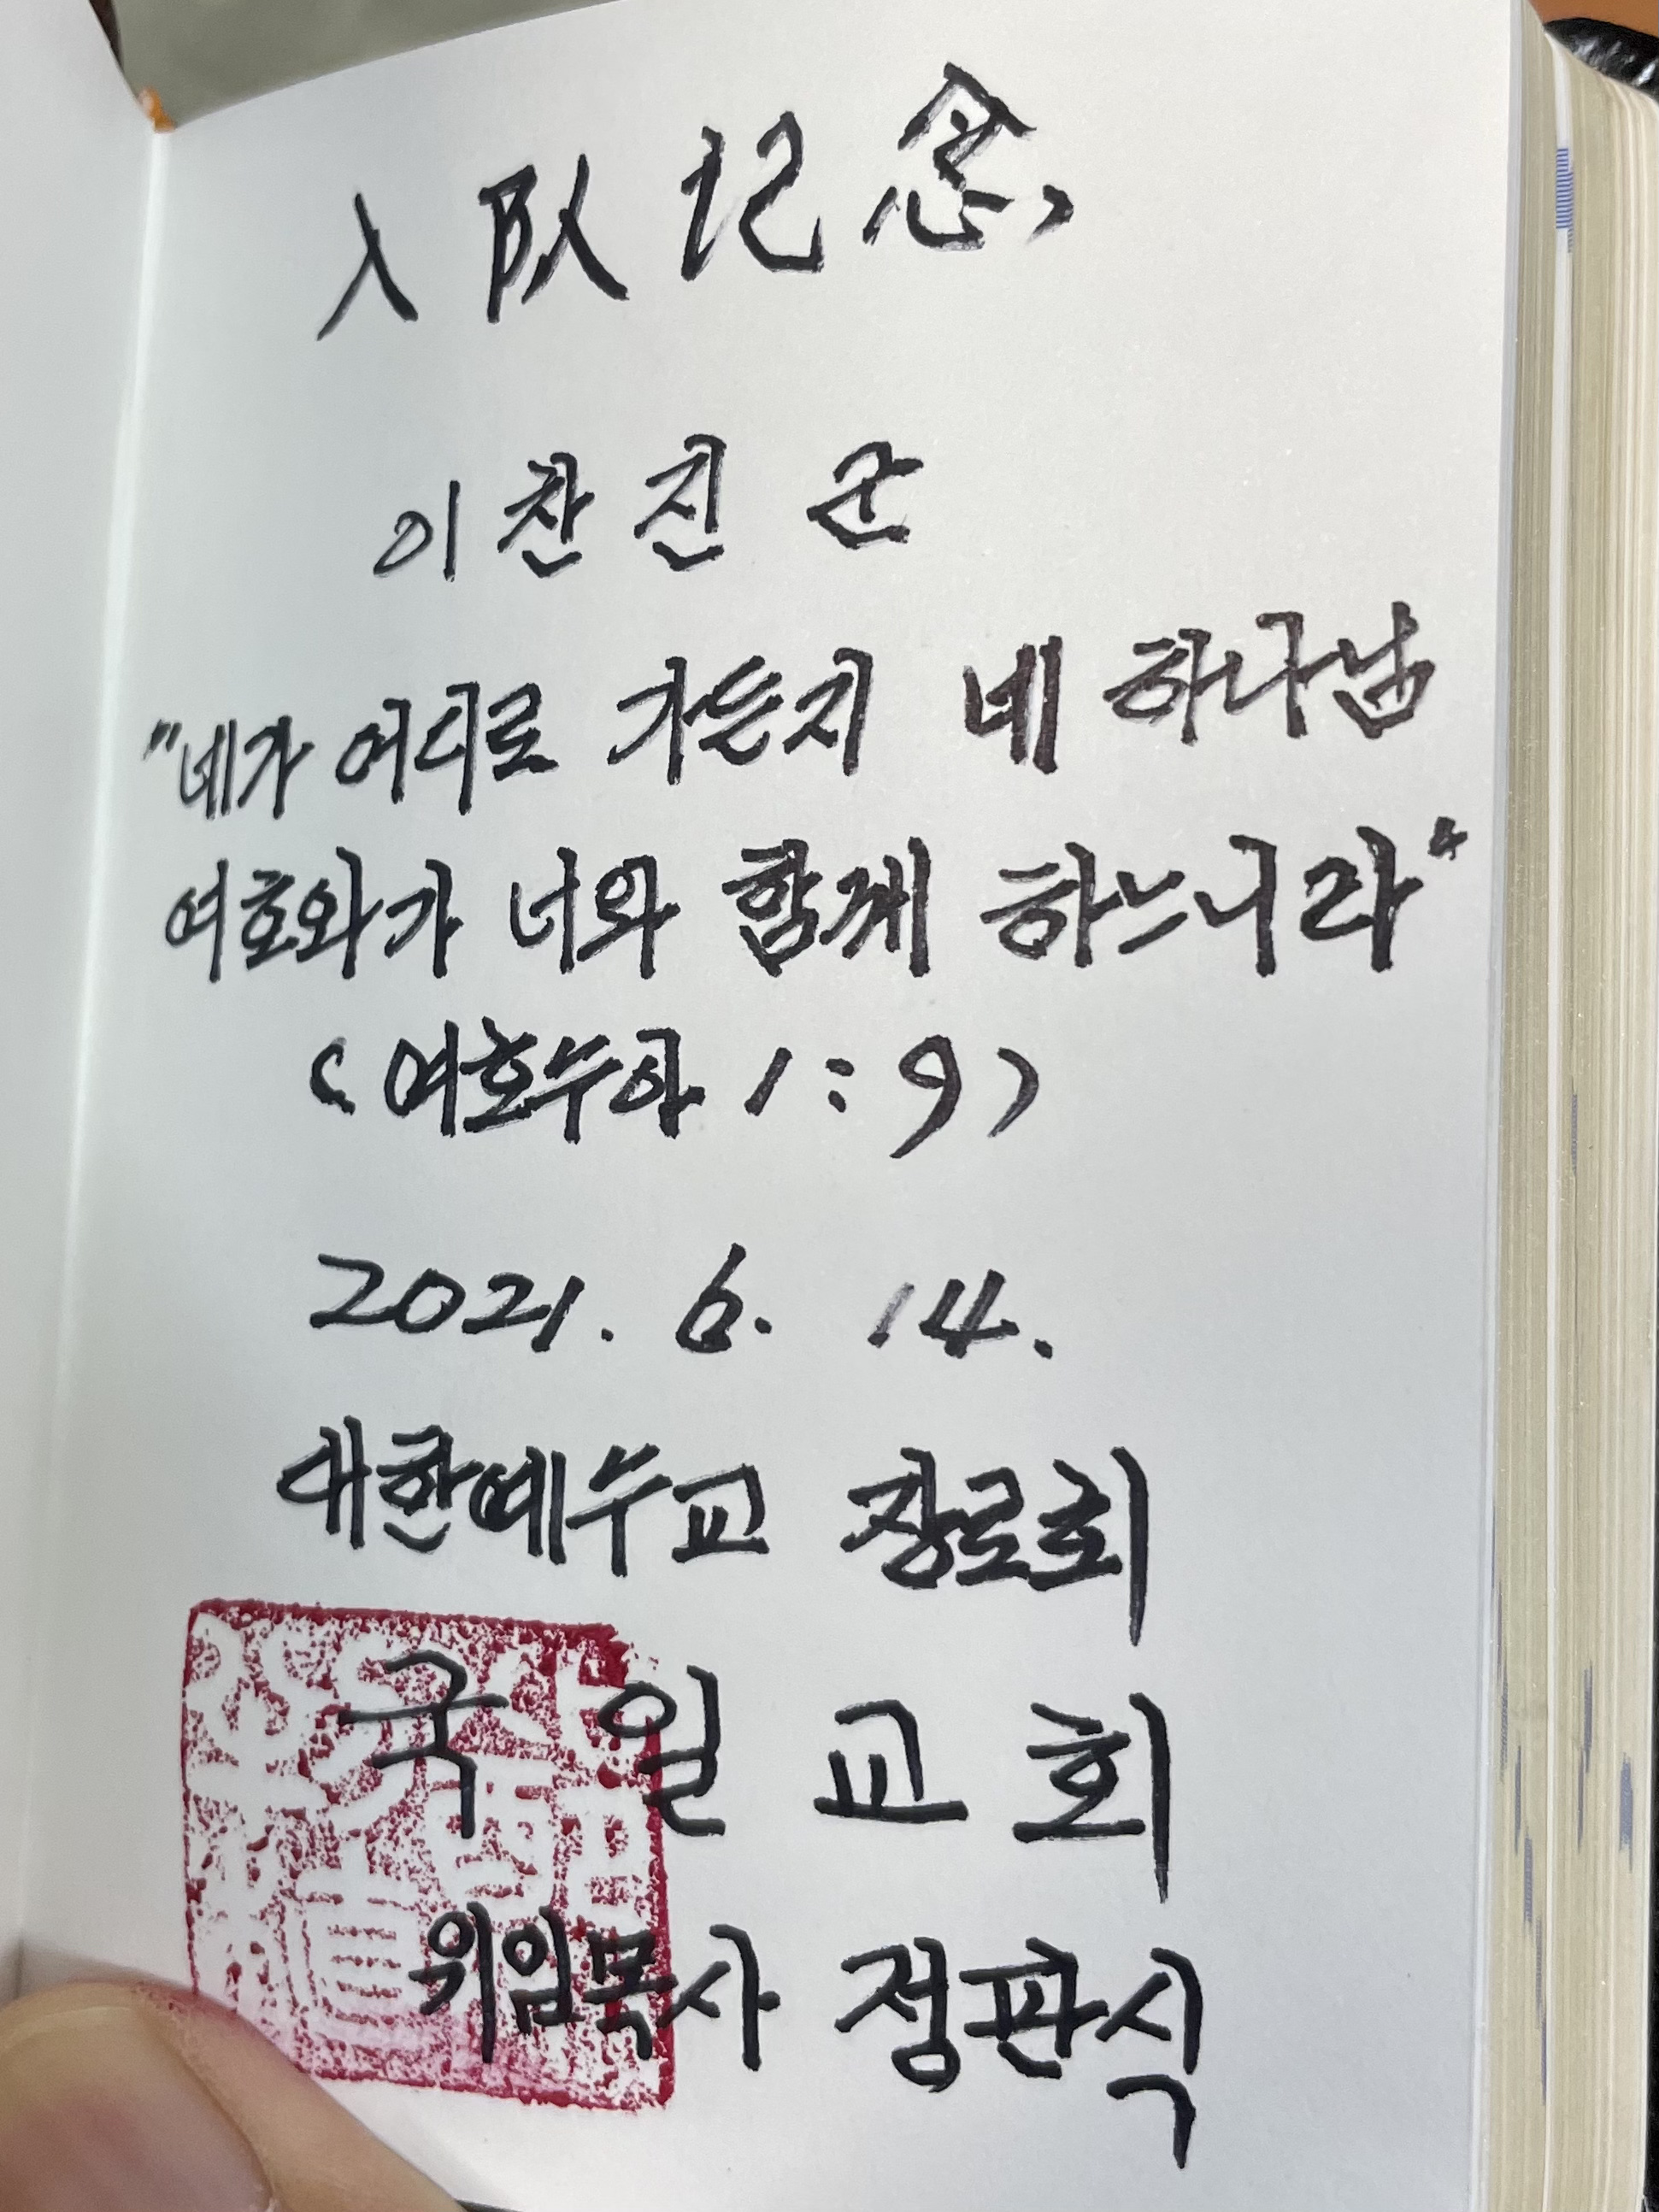 入队记念,
이찬진 군
"네가 어디로 가든지 네 하나님
여호와가 너와 함께 하느니라"
(여호수아 1:9)
2021. 6. 14.
대한예수교 장로회
국일교회
위임목사 정판식